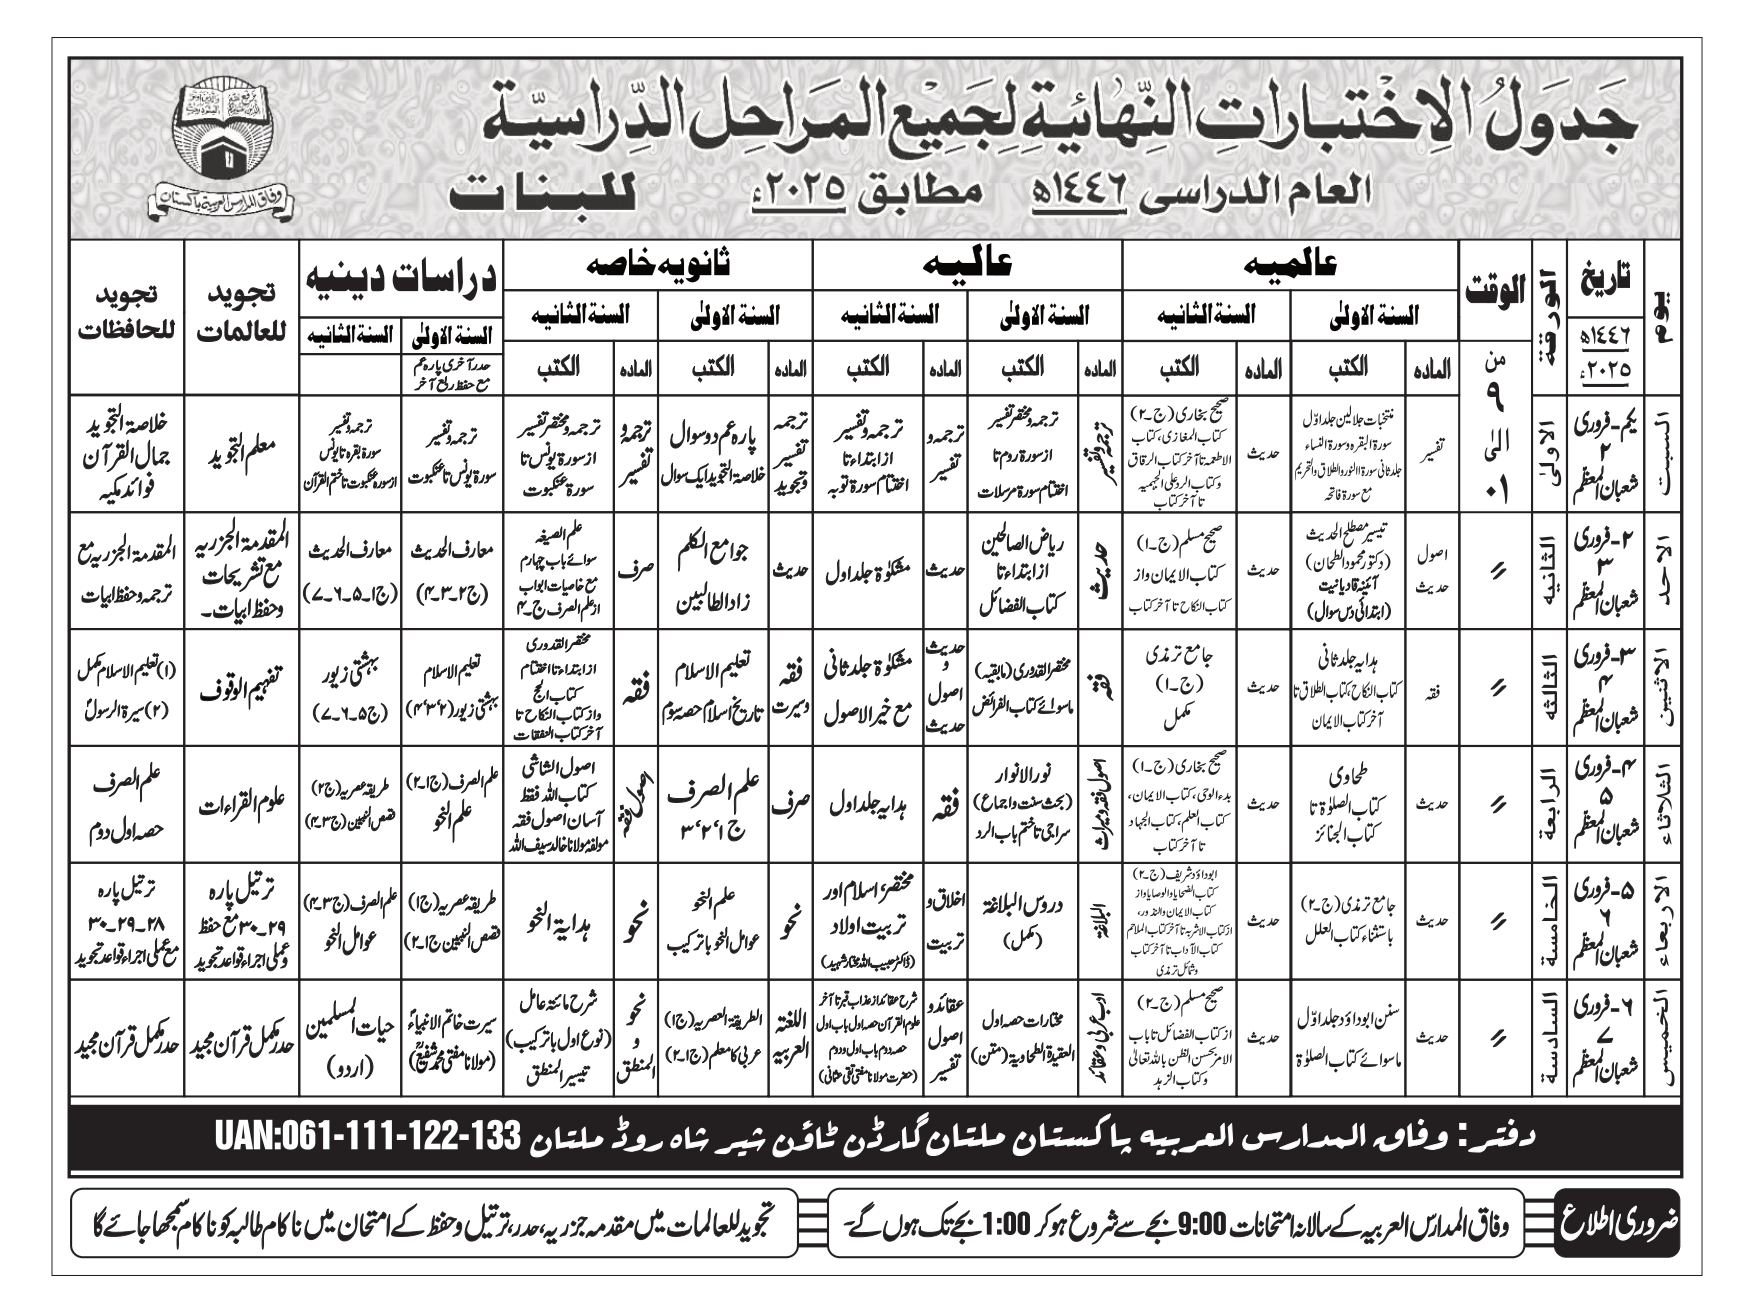 جدول الاختبارات النهائية لجميع المراحل الدراسية
العام الدراسى ١٤٤٦ھ مطابق ۲۰۲۵ء للبنات
وفاق المدارس العربیہ پاکستان
یوم
تاریخ
۱۴۴۶ھ
۲۰۲۵ء
الورقة
الوقت
من
۹
الیٰ
۰۱
عالمیه
السنة الاولیٰ
السنة الثانیه
عالیه
السنة الاولیٰ
السنة الثانیه
ثانویه خاصه
السنة الاولیٰ
السنة الثانیه
دراسات دینیه
السنة الاولیٰ
السنة الثانیه
حدر آخری پارہ عم
مع حفظ ربع آخر
تجوید
للعالمات
تجوید
للحافظات
الماده
الکتب
الماده
الکتب
الماده
الکتب
الماده
الکتب
الماده
الکتب
الماده
الکتب
السبت
یکم۔فروری
۲
شعبان المعظم
الاولیٰ
تفسیر
منتخبات جلالین جلد اوّل
سورۃ البقرہ وسورۃ النساء
جلد ثانی سورۃ النور والطلاق والتحریم
مع سورۃ فاتحہ
حدیث
صحیح بخاری (ج۔۲)
کتاب المغازی، کتاب
الاطعمہ تا آخر کتاب الرقاق
وکتاب الرد علی الجہمیہ
تا آخر کتاب
ترجمہ و تفسیر
ترجمہ ومختصر تفسیر
از سورۃ روم تا
اختتام سورۃ مرسلات
ترجمہ و
تفسیر
ترجمہ و تفسیر
از ابتداء تا
اختتام سورۃ توبہ
ترجمہ
تفسیر
وتجوید
پارہ عم دو سوال
خلاصۃ التجوید ایک سوال
ترجمہ و
تفسیر
ترجمہ ومختصر تفسیر
از سورۃ یونس تا
سورۃ عنکبوت
ترجمہ و تفسیر
سورۃ یونس تا عنکبوت
ترجمہ و تفسیر
سورۃ بقرہ تا یونس
از سورہ عنکبوت تا ختم القرآن
معلم التجوید
خلاصۃ التجوید
جمال القرآن
فوائد مکیہ
الاحد
۲۔فروری
۳
شعبان المعظم
الثانیه
〃
اصول
حدیث
تیسیر مصطلح الحدیث
(دکتور محمود الطحان)
آئینۂ قادیانیت
(ابتدائی دس سوال)
حدیث
صحیح مسلم (ج۔۱)
کتاب الایمان واز
کتاب النکاح تا آخر کتاب
حدیث
ریاض الصالحین
از ابتداء تا
کتاب الفضائل
حدیث
مشکوٰۃ جلد اول
حدیث
جوامع الکلم
زاد الطالبین
صرف
علم الصیغہ
سوائے باب چہارم
مع خاصیات ابواب
از علم الصرف ج۔۴
معارف الحدیث
(ج۲۔۳۔۴)
معارف الحدیث
(ج۱۔۵۔۶۔۷)
المقدمۃ الجزریہ
مع تشریحات
وحفظ ابیات۔
المقدمۃ الجزریہ مع
ترجمہ وحفظ ابیات
الاثنین
۳۔فروری
۴
شعبان المعظم
الثالثه
〃
فقہ
ہدایہ جلد ثانی
کتاب النکاح، کتاب الطلاق تا
آخر کتاب الایمان
حدیث
جامع ترمذی
(ج۔۱)
مکمل
فقہ
مختصر القدوری (مابقیہ)
ماسوائے کتاب الفرائض
حدیث
و
اصول
حدیث
مشکوٰۃ جلد ثانی
مع خیر الاصول
فقہ
وسیرت
تعلیم الاسلام
تاریخ اسلام حصہ سوم
فقہ
مختصر القدوری
از ابتداء تا اختتام
کتاب الحج
واز کتاب النکاح تا
آخر کتاب النفقات
تعلیم الاسلام
بہشتی زیور (۲،۳،۴)
بہشتی زیور
(ج۵۔۶۔۷)
تفہیم الوقوف
(۱) تعلیم الاسلام مکمل
(۲) سیرۃ الرسولؐ
الثلاثاء
۴۔فروری
۵
شعبان المعظم
الرابعة
〃
حدیث
طحاوی
کتاب الصلوٰۃ تا
کتاب الجنائز
حدیث
صحیح بخاری (ج۔۱)
بدء الوحی، کتاب الایمان،
کتاب العلم، کتاب الجہاد
تا آخر کتاب
اصول فقہ ومیراث
نور الانوار
(بحث سنت واجماع)
سراجی تا ختم باب الرد
فقہ
ہدایہ جلد اول
صرف
علم الصرف
ج ۱،۲،۳
اصول فقہ
اصول الشاشی
کتاب اللہ فقط
آسان اصول فقہ
مولفہ مولانا خالد سیف اللہ
علم الصرف (ج۱۔۲)
علم النحو
طریقہ عصریہ (ج۲)
قصص النبیین (ج۳۔۴)
علوم القراءات
علم الصرف
حصہ اول دوم
الاربعاء
۵۔فروری
۶
شعبان المعظم
الخامسة
〃
حدیث
جامع ترمذی (ج۔۲)
باستثناء کتاب العلل
حدیث
ابوداؤد شریف (ج۔۲)
کتاب الضحایا والوصایا واز
کتاب الایمان والنذور،
از کتاب الاشربہ تا آخر کتاب الملاحم
کتاب الآداب تا آخر کتاب
وشمائل ترمذی
البلاغة
دروس البلاغۃ
(مکمل)
اخلاق و
تربیت
مختصر، اسلام اور
تربیت اولاد
(ڈاکٹر حبیب اللہ مختار شہید)
نحو
علم النحو
عوامل النحو با ترکیب
نحو
ہدایۃ النحو
طریقہ عصریہ (ج۱)
قصص النبیین ج۱۔۲)
علم الصرف (ج۳۔۴)
عوامل النحو
ترتیل پارہ
۲۹۔۳۰ مع حفظ
وعملی اجراء قواعد تجوید
ترتیل پارہ
۲۸۔۲۹۔۳۰
مع عملی اجراء قواعد تجوید
الخمیس
۶۔فروری
۷
شعبان المعظم
السادسة
〃
حدیث
سنن ابوداؤد جلد اوّل
ماسوائے کتاب الصلوٰۃ
حدیث
صحیح مسلم (ج۔۲)
از کتاب الفضائل تا باب
الامر بحسن الظن باللہ تعالیٰ
وکتاب الزہد
ادب عربی وعقائد
مختارات حصہ اول
العقیدۃ الطحاویۃ (متن)
عقائد و
اصول
تفسیر
شرح عقائد از عذاب قبر تا آخر
علوم القرآن حصہ اول باب اول
حصہ دوم باب اول و دوم
(حضرت مولانا مفتی تقی عثمانی)
اللغة
العربیه
الطریقۃ العصریہ (ج۱)
عربی کا معلم (ج۱۔۲)
نحو
و
المنطق
شرح مائتہ عامل
(نوع اول با ترکیب)
تیسیر المنطق
سیرت خاتم الانبیاءؐ
(مولانا مفتی محمد شفیعؒ)
حیات المسلمین
(اردو)
حدر مکمل قرآن مجید
حدر مکمل قرآن مجید
دفتر: وفاق المدارس العربیہ پاکستان ملتان گارڈن ٹاؤن شیر شاہ روڈ ملتان UAN:061-111-122-133
ضروری اطلاع
وفاق المدارس العربیہ کے سالانہ امتحانات 9:00 بجے سے شروع ہو کر 1:00 بجے تک ہوں گے۔
تجوید للعالمات میں مقدمہ جزریہ، حدر، ترتیل وحفظ کے امتحان میں ناکام طالبہ کو ناکام سمجھا جائے گا